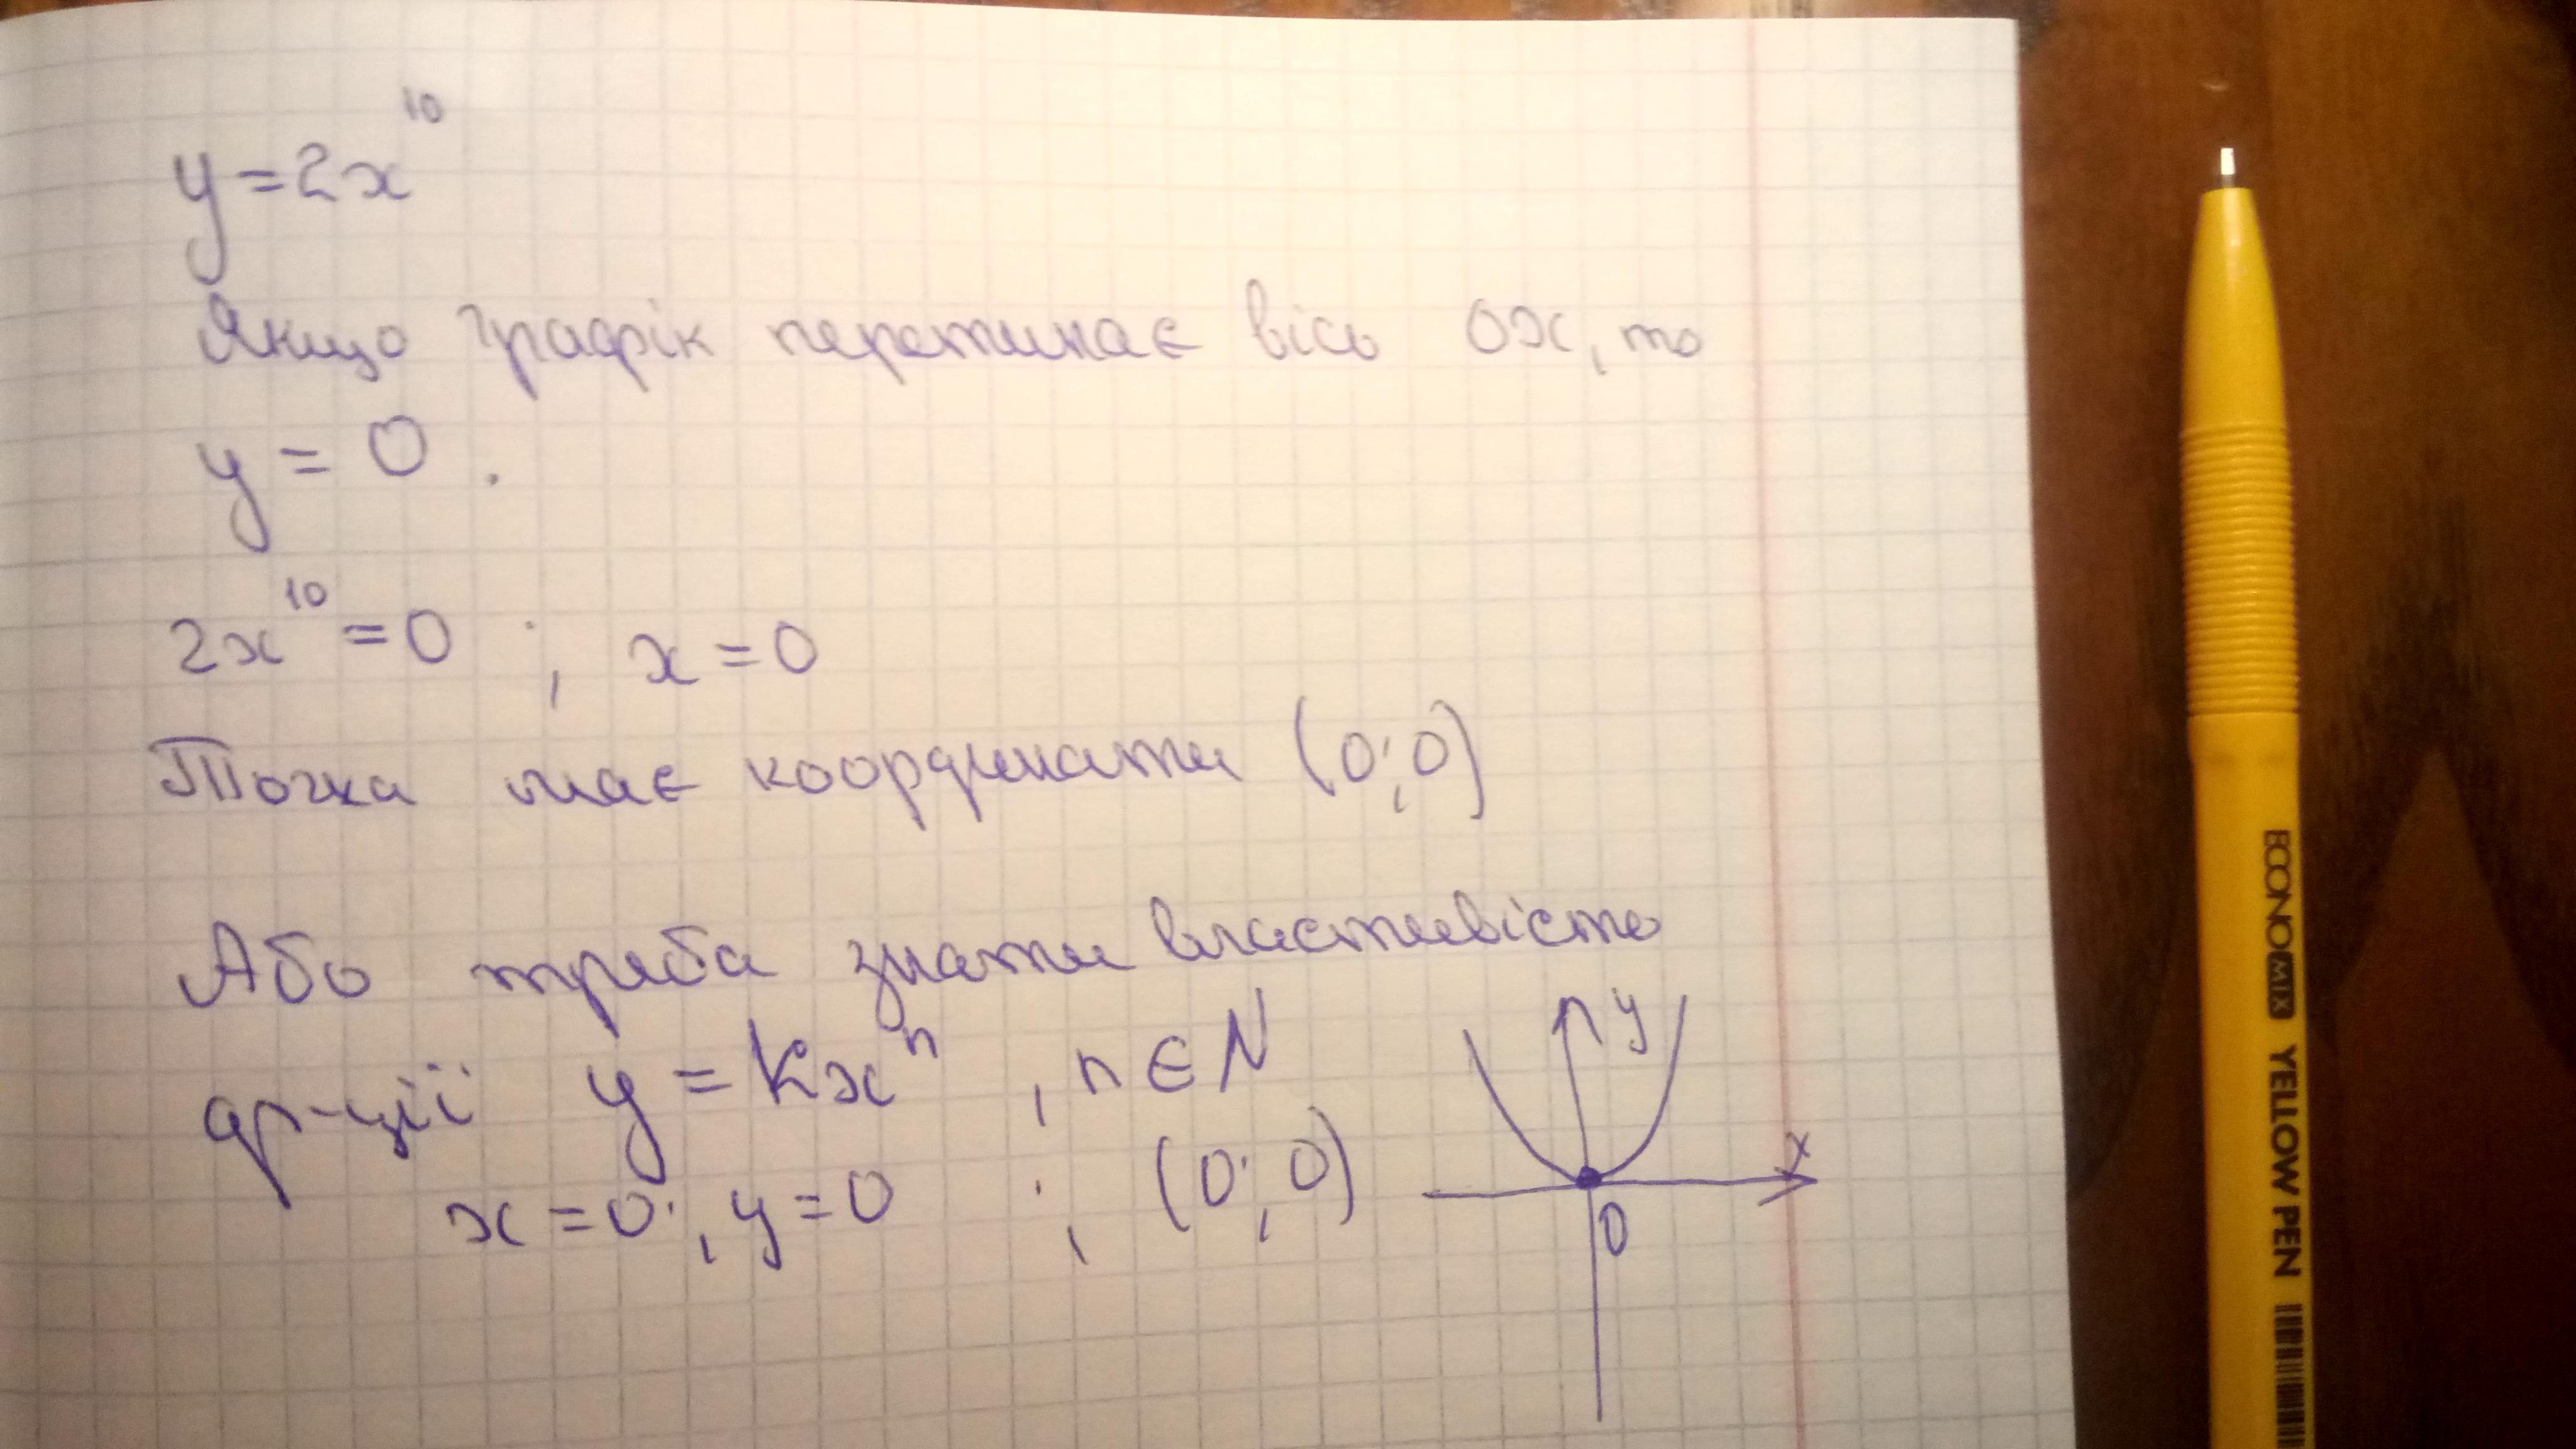 y = 2x¹⁰
Якщо графік перетинає вісь Ox, то
y = 0.
2x¹⁰ = 0 ; x = 0
Точка має координати (0;0)
Або треба знати властивість
ф-ції y = kxⁿ , n ∈ N
x = 0; y = 0 ; (0; 0)
y
x
0
ECONOMIX YELLOW PEN